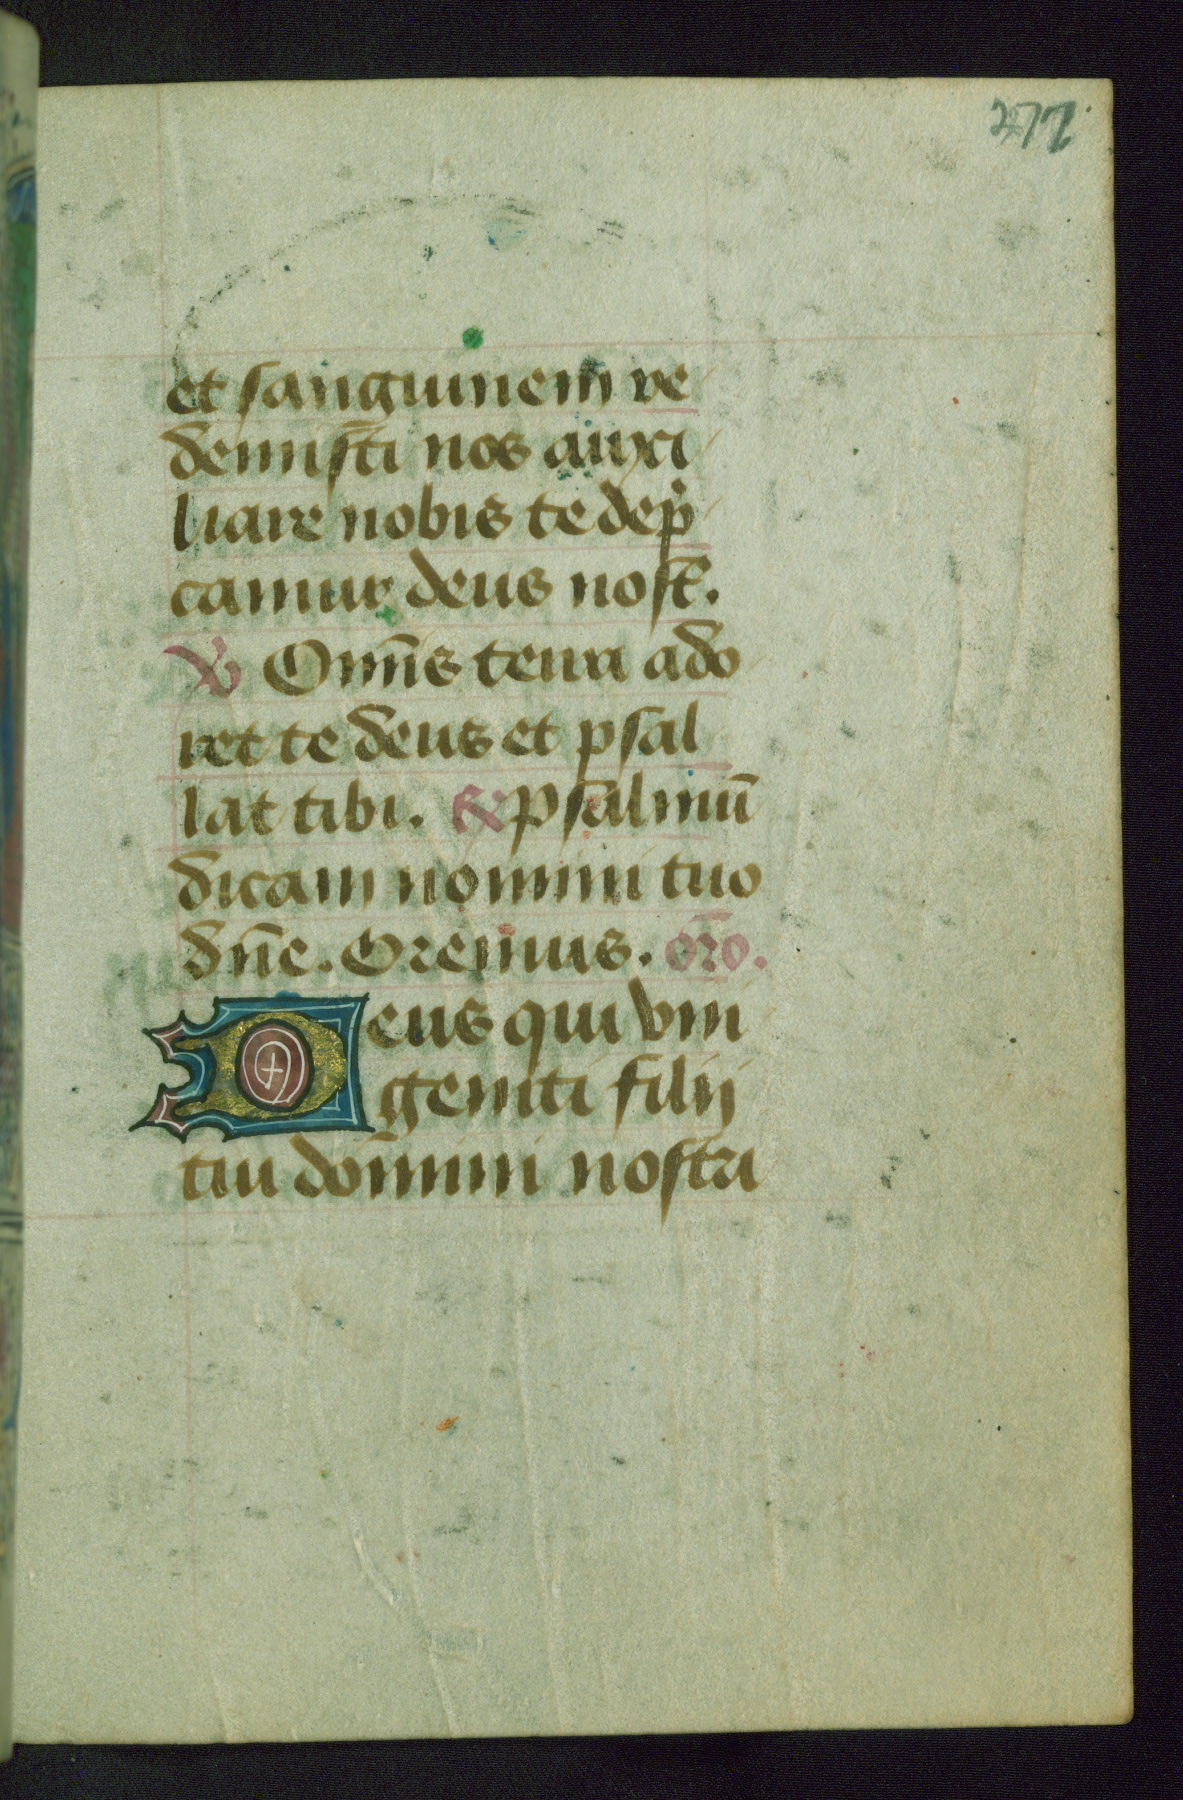 277
et sanguinem re
demisti nos auxi
liare nobis te dep̄
camur deus nost̄.
℣ Om̄s terra ado
ret te deus et psal
lat tibi. ℟ psalmū
dicam nomini tuo
dn̄e. Oremus. or̄o.
Deus qui vni
geniti filij
tui dom̄ini nostri